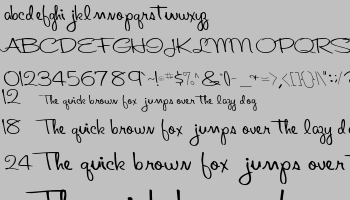 abcdefghi jklmnopqrstuvwxyz
ABCDEFGHIJKLMNOPQRS
0123456789
12 The quick brown fox jumps over the lazy dog
18 The quick brown fox jumps over the lazy d
24 The quick brown fox jumps over